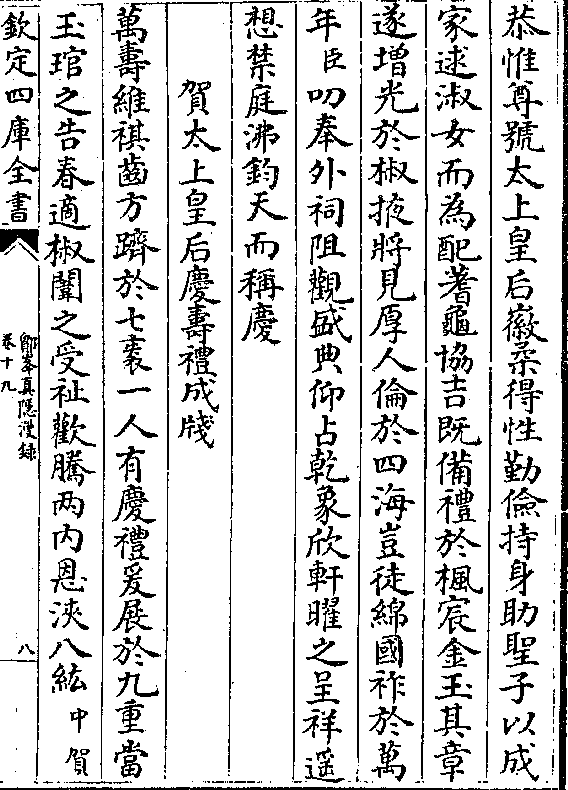 恭惟尊號太上皇后徽柔得性勤儉持身助聖子以成
家逑淑女而為配蓍龜協吉既備禮於楓宸金玉其章
遂增光於椒掖將見厚人倫於四海豈徒綿國祚於萬
年臣叨奉外祠阻觀盛典仰占乾象欣軒曜之呈祥遥
想禁庭沸鈞天而稱慶
賀太上皇后慶壽禮成牋
萬壽維祺齒方躋於七袠一人有慶禮爰展於九重當
玉琯之告春適椒闈之受祉歡騰兩内恩浹八紘中賀
欽定四庫全書
鄮峯真隠漫録
卷十九
八